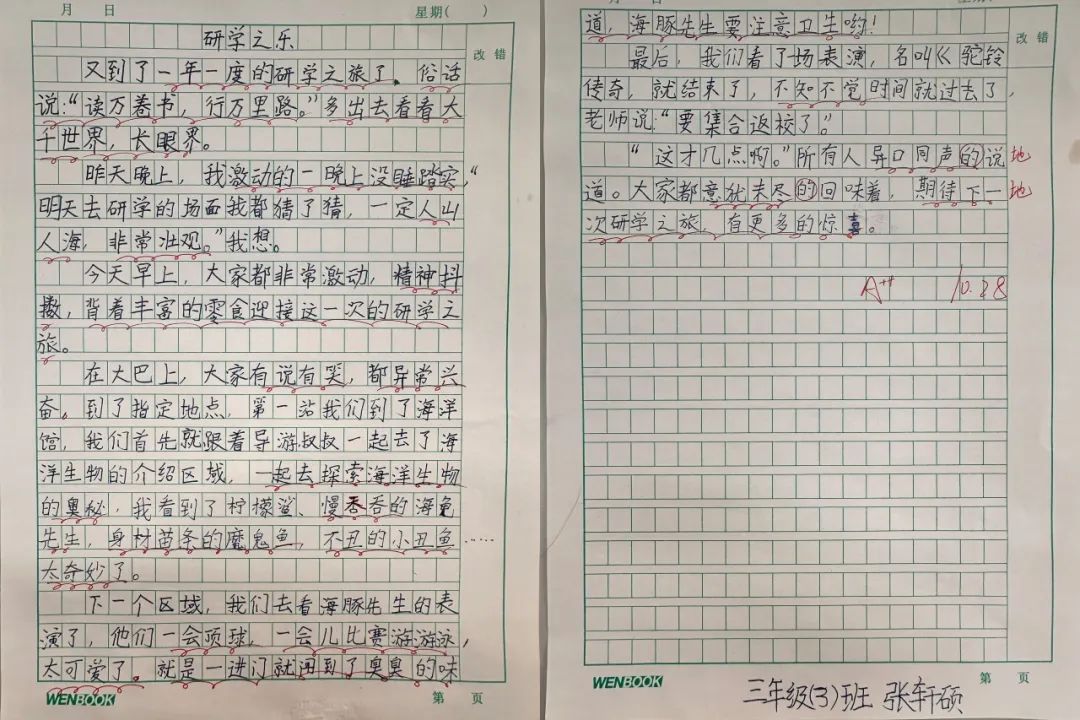 月 日 星期( )
改错
研学之乐
又到了一年一度的研学之旅了。俗话
说:“读万卷书,行万里路。”多出去看看大
千世界,长眼界。
昨天晚上,我激动的一晚上没睡踏实,“
明天去研学的场面我都猜了猜,一定人山
人海,非常壮观。”我想。
今天早上,大家都非常激动,精神抖
擞,背着丰富的零食迎接这一次的研学之
旅。
在大巴上,大家有说有笑,都异常兴
奋。到了指定地点,第一站我们到了海洋
馆,我们首先就跟着导游叔叔一起去了海
洋生物的介绍区域,一起去探索海洋生物
的奥秘,我看到了柠檬鲨、慢吞吞的海龟
先生,身材苗条的魔鬼鱼,不丑的小丑鱼……
太奇妙了。
下一个区域,我们去看海豚先生的表
演了,他们一会顶球,一会儿比赛游游泳,
太可爱了。就是一进门就闻到了臭臭的味
WENBOOK 第 页
道,海豚先生要注意卫生哟!
改错
最后,我们看了场表演,名叫《驼铃
传奇,就结束了,不知不觉时间就过去了,
老师说:“要集合返校了”。
“这才几点啊。”所有人异口同声的说 地
道。大家都意犹未尽的回味着,期待下一 地
次研学之旅,有更多的惊喜。
A++ 10.28
WENBOOK 第 页
三年级(3)班 张轩硕